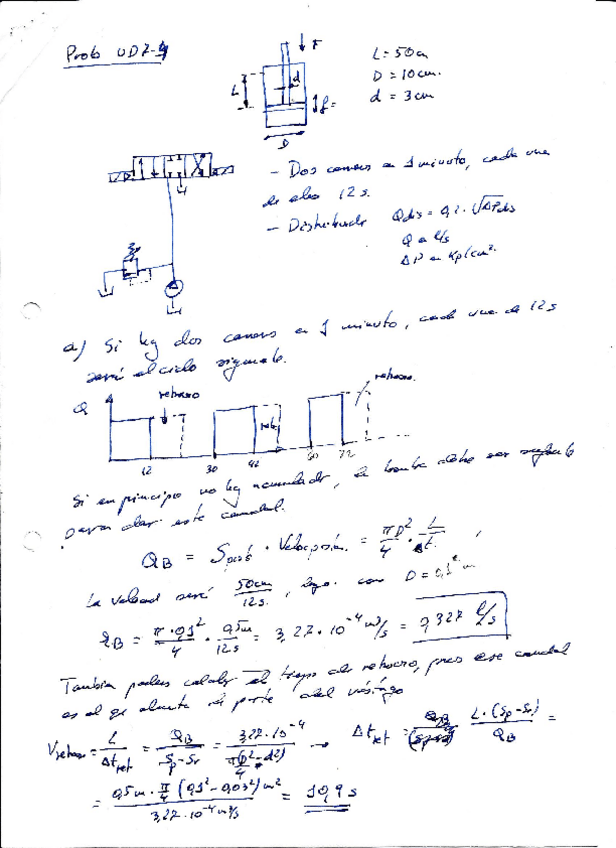 Prob UD7-4
F
L
d
f=
D
L = 50cm
D = 10cm.
d = 3cm
- Dos carreras en 1 minuto, cada una
de ellas 12 s.
- Distribuidor Qdis = 0,1 · √ΔPdis
Q en l/s
ΔP en Kp/cm².
a) Si hay dos carreras en 1 minuto, cada una de 12s
será el ciclo siguiente.
Q
retroceso
ret.
retroceso.
12 30 42 60 72
Si en principio no hay acumulador, la bomba debe ser
para dar este caudal.
Q_B = S · Veloc = πD²/4 · L/Δt. ,
La velocidad será 50cm/12s. , luego con D = 0,1 m
Q_B = π · 0,1²/4 · 0,5m/12s = 3,27 · 10⁻⁴ m³/s = 0,327 l/s
También podemos calcular el tiempo de retroceso, pues ese caudal
es el que alimenta la parte del vástago
V retroceso = L/Δt ret = Q_B/(Sp-Sv) = 3,27 · 10⁻⁴/(π(D²-d²)/4) → Δt ret = L · (Sp-Sv)/Q_B =
= 0,5m · π/4 (0,1² - 0,03²) m² / 3,27 · 10⁻⁴ m³/s = 10,9 s